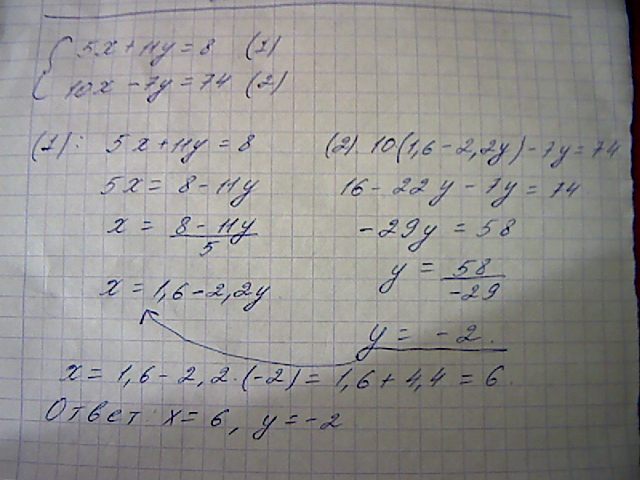 { 5x + 11y = 8 (1)
10x - 7y = 74 (2)
(1): 5x + 11y = 8
5x = 8 - 11y
x = (8 - 11y)/5
x = 1,6 - 2,2y
(2). 10(1,6 - 2,2y) - 7y = 74
16 - 22y - 7y = 74
-29y = 58
y = 58/-29
y = -2.
x = 1,6 - 2,2·(-2) = 1,6 + 4,4 = 6.
Ответ: x = 6, y = -2